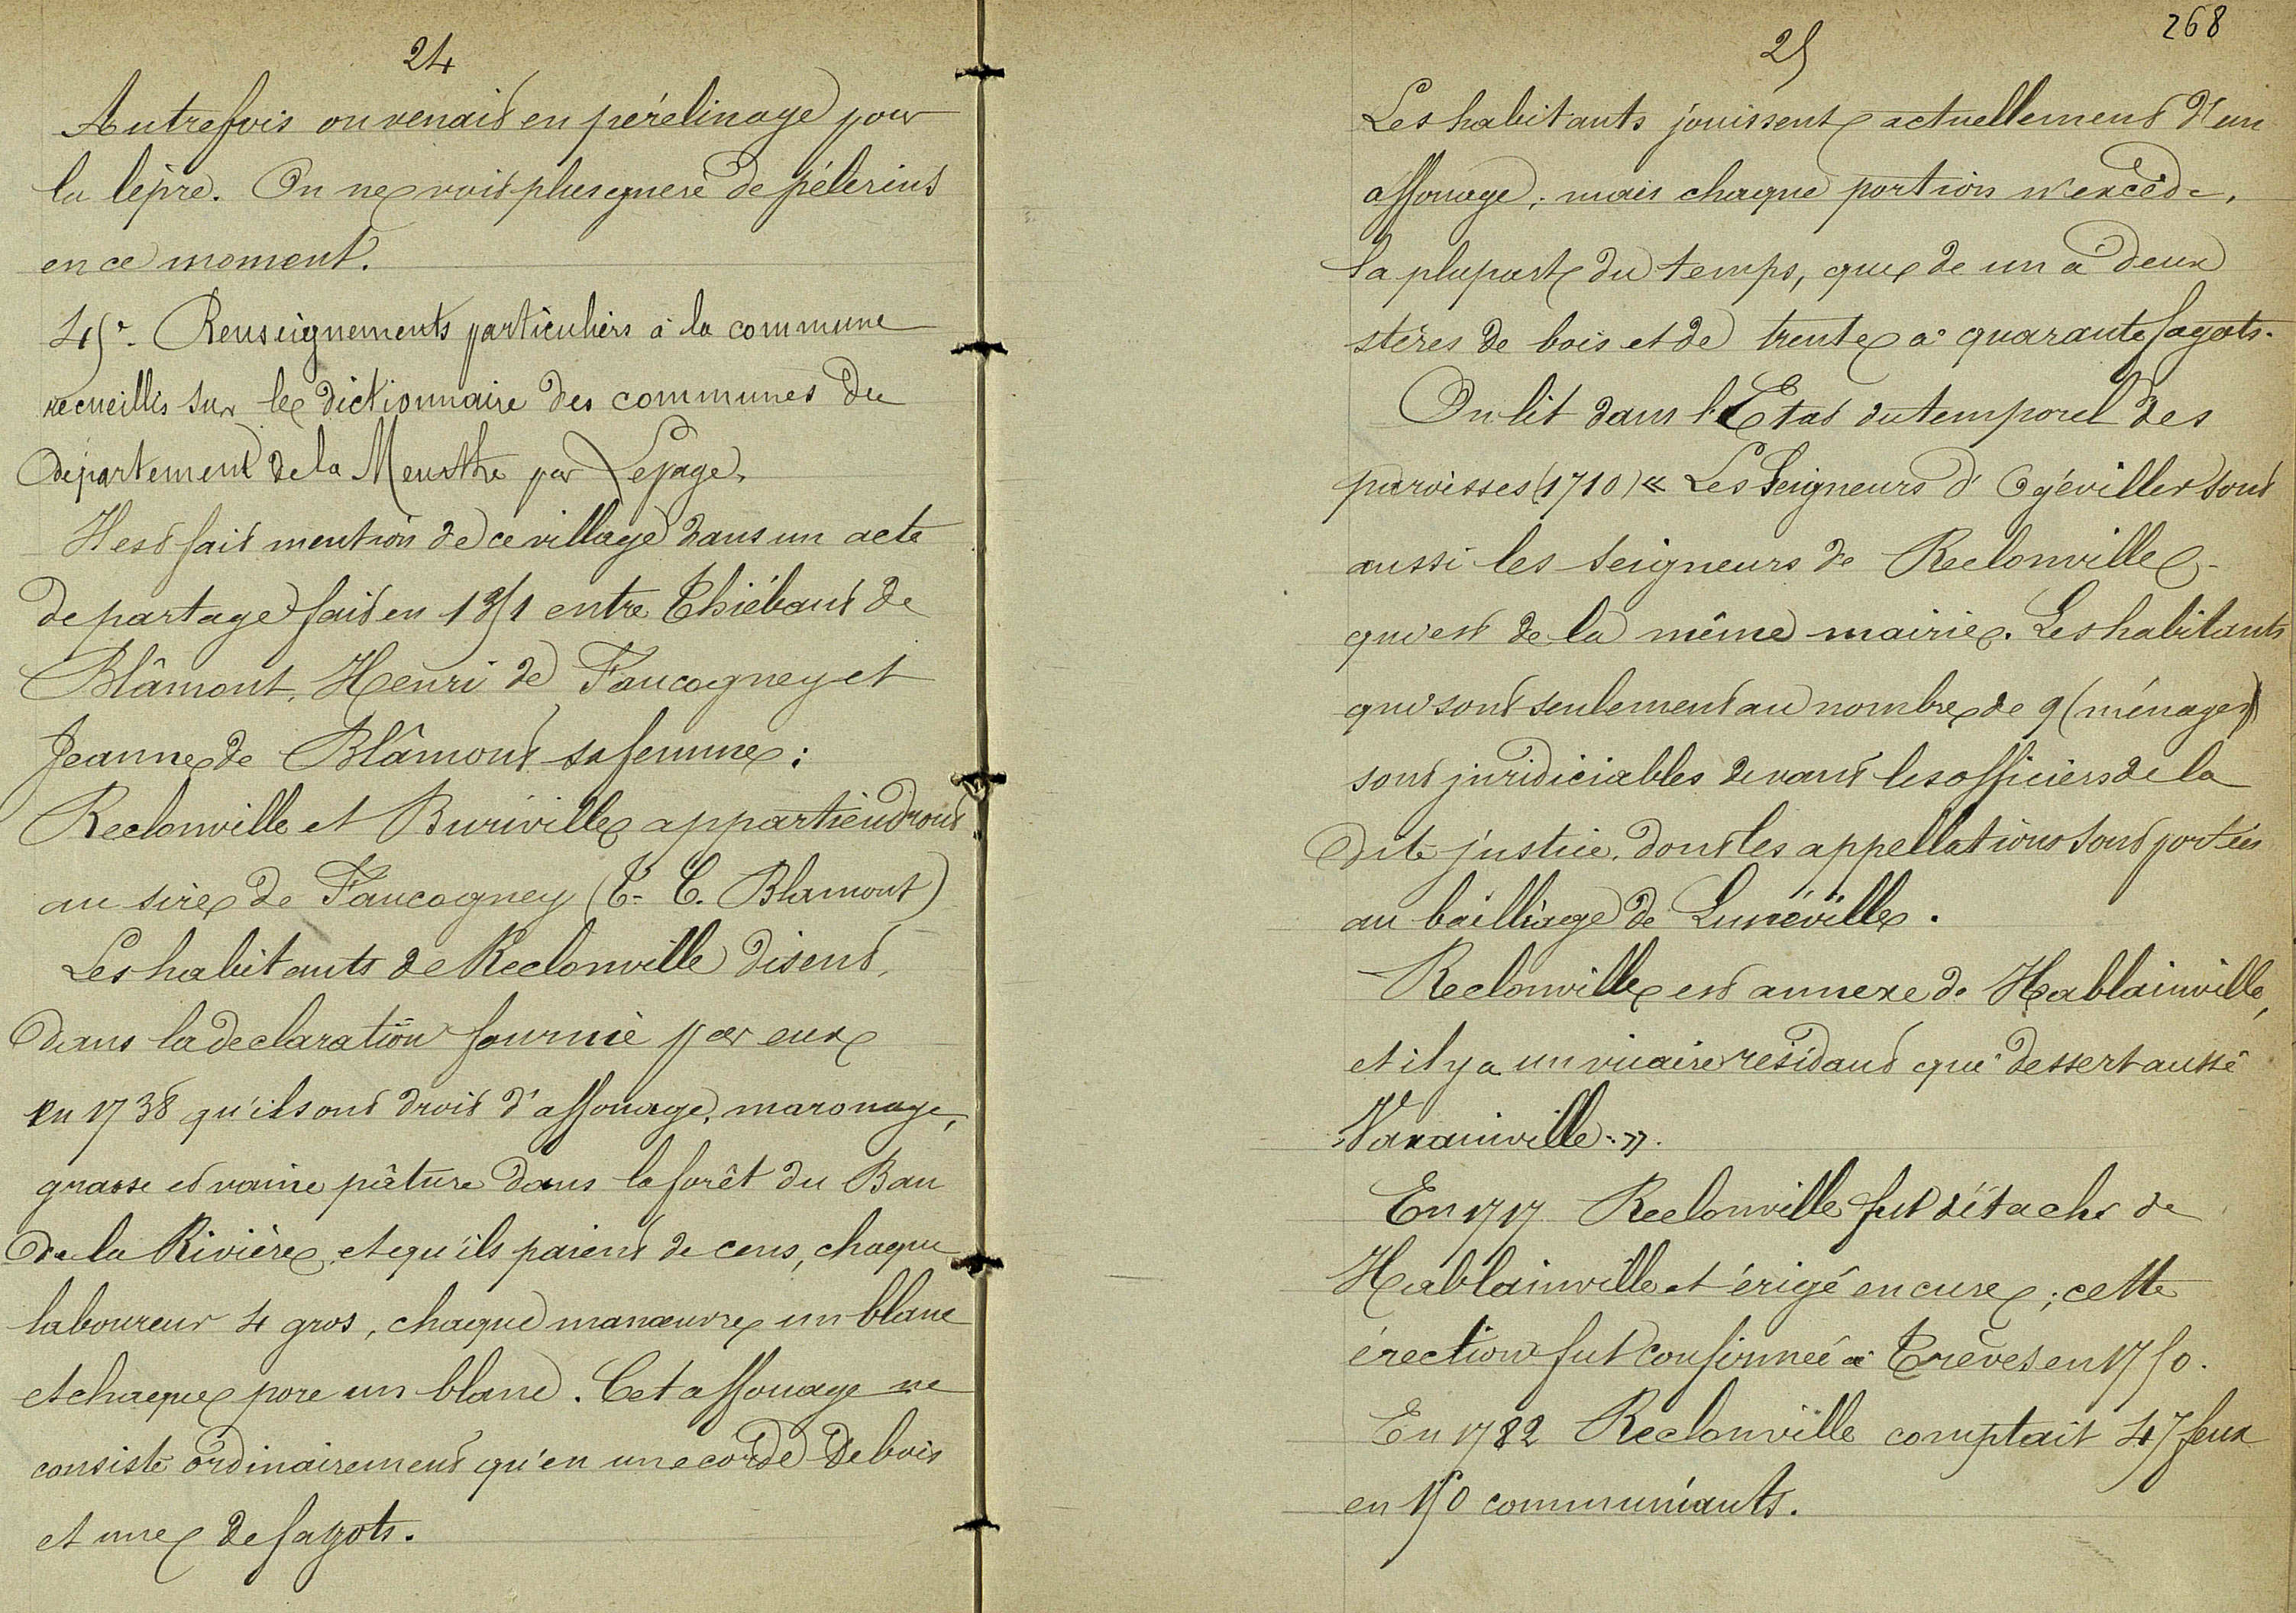 24
Autrefois on venait en pérélinage pour
la lèpre. On ne voit plus guere de pélerins
en ce moment.
45°. Renseignements particuliers à la commune
recueillis sur le dictionnaire des communes du
département de la Meurthe par Lepage.
Il est fait mention de ce village dans un acte
de partage fait en 1351 entre Thiébaut de
Blâmont, Henri de Faucogney et
Jeanne de Blâmont sa femme :
Reclonville et Buriville appartiendront
au sire de Faucogney (T. C. Blamont)
Les habitants de Reclonville disent,
dans la declaration fournie par eux
en 1738 qu'ils ont droit d'affouage, maronage,
grasse et vaine pâture dans la forêt du Ban
de la Rivière, et qu'ils paient de cens, chaque
laboureur 4 gros, chaque manœuvre un blanc
et chaque porc un blanc. Cet affouage ne
consiste ordinairement qu'en une corde de bois
et une de fagots.
268
25
Les habitants jouissent actuellement d'un
affouage ; mais chaque portion n'excède,
la plupart du temps, que de un à deux
stères de bois et de trente à quarante fagots.
On lit dans l'Etat du temporel des
paroisses (1710) « Les Seigneurs d'Ogéviller sont
aussi les seigneurs de Reclonville
qui est de la même mairie. Les habitants
qui sont seulement au nombre de 9 (ménages)
sont juridiciables devant les officiers de la
dite justice, dont les appellations sont portées
au bailliage de Lunéville.
Reclonville est annexe de Hablainville,
et il y a un vicaire résidant qui dessert aussi
Vaxainville. ».
En 1717 Reclonville fut détaché de
Hablainville et érigé en cure ; cette
érection fut confirmée à Trèves en 1750.
En 1782 Reclonville comptait 47 feux
en 150 communiants.